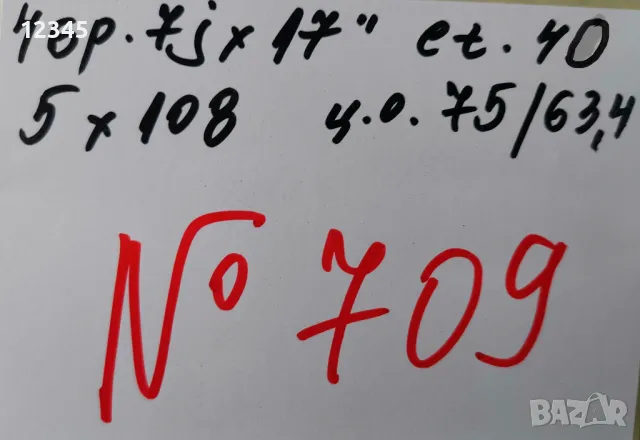 12345
4бр. 7j x 17" et. 40
5 x 108 ц.о. 75/63,4
№ 709
BAZAR